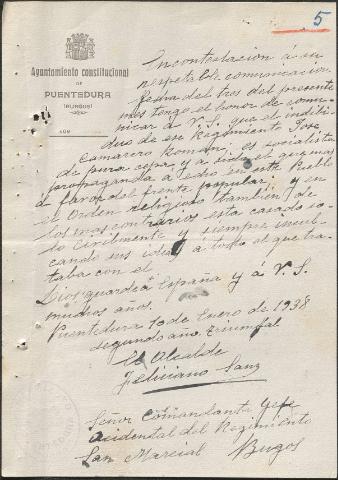 5
Ayuntamiento constitucional
DE
PUENTEDURA
(BURGOS)
NÚM.
En contestacion á su
respetable comunicacion
fecha del tres del presente
mes tengo el honor de comu-
nicar á V. S. que el indibi-
duo de ese Regimiento Jose
Camarero Roman, es socialista
de pura cepa y a sido el que mas
propaganda á echo en este Pueblo
á favor del frente popular; y en
el Orden religioso tambien de
los mas contrarios esta casado so-
lo Civilmente y siempre incul-
cando sus ideas á todo el que tra-
taba con el
Dios guarde á España y á V. S.
muchos años.
Puentedura 10 de Enero de 1938
segundo año triumfal
El Alcalde
Feliciano Sanz
Señor Comandante Gefe
acidental del Regimiento
San Marcial Burgos